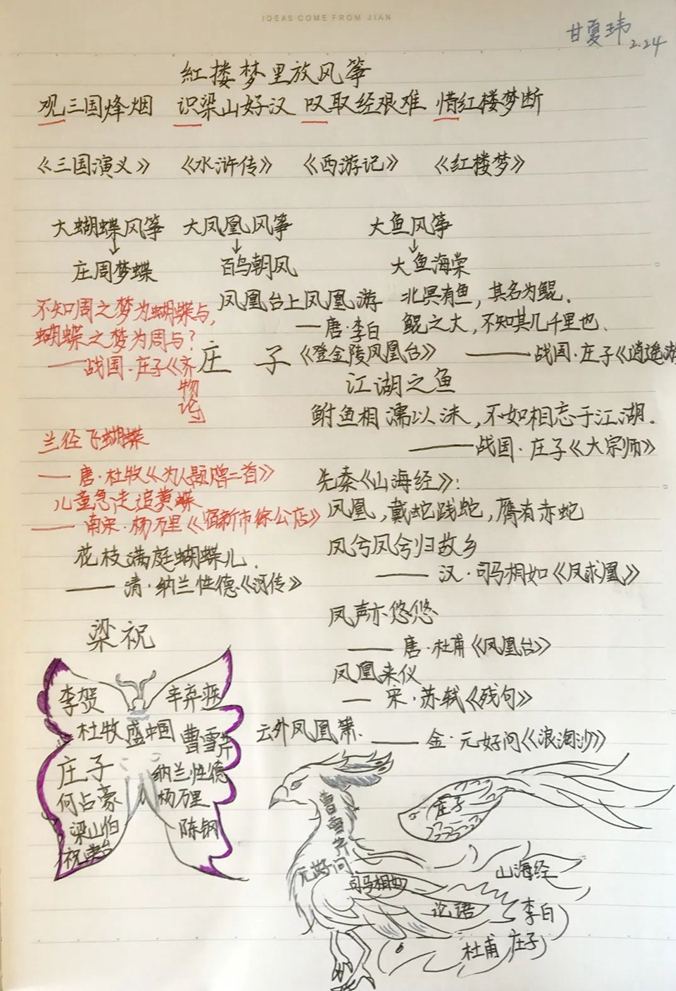 IDEAS COME FROM JIAN
甘夏玮
2.24
红楼梦里放风筝
观三国烽烟 识梁山好汉 叹取经艰难 惜红楼梦断
《三国演义》 《水浒传》 《西游记》 《红楼梦》
大蝴蝶风筝 大凤凰风筝 大鱼风筝
↓ ↓ ↓
庄周梦蝶 百鸟朝凤 大鱼海棠
不知周之梦为蝴蝶与,
蝴蝶之梦为周与?
——战国·庄子《齐物论》
凤凰台上凤凰游
——唐·李白
《登金陵凤凰台》
北冥有鱼,其名为鲲.
鲲之大,不知其几千里也.
——战国·庄子《逍遥游
庄 子
江湖之鱼
鲋鱼相濡以沫,不如相忘于江湖.
——战国·庄子《大宗师》
兰径飞蝴蝶
——唐·杜牧《为人题赠二首》
儿童急走追黄蝶
——南宋·杨万里《宿新市徐公店》
花枝满庭蝴蝶儿.
——清·纳兰性德《河传》
先秦《山海经》:
凤凰,戴蛇践蛇,膺有赤蛇
凤兮凤兮归故乡
——汉·司马相如《凤求凰》
凤声亦悠悠
——唐·杜甫《凤凰台》
凤凰来仪
——宋·苏轼《残句》
云外凤凰箫.——金·元好问《浪淘沙》
梁祝
李贺 辛弃疾
杜牧 盛中国 曹雪芹
庄子 纳兰性德
何占豪 杨万里
梁山伯 陈钢
祝英台
曹雪芹
元好问
司马相如
论语
庄子
山海经
李白
杜甫 庄子